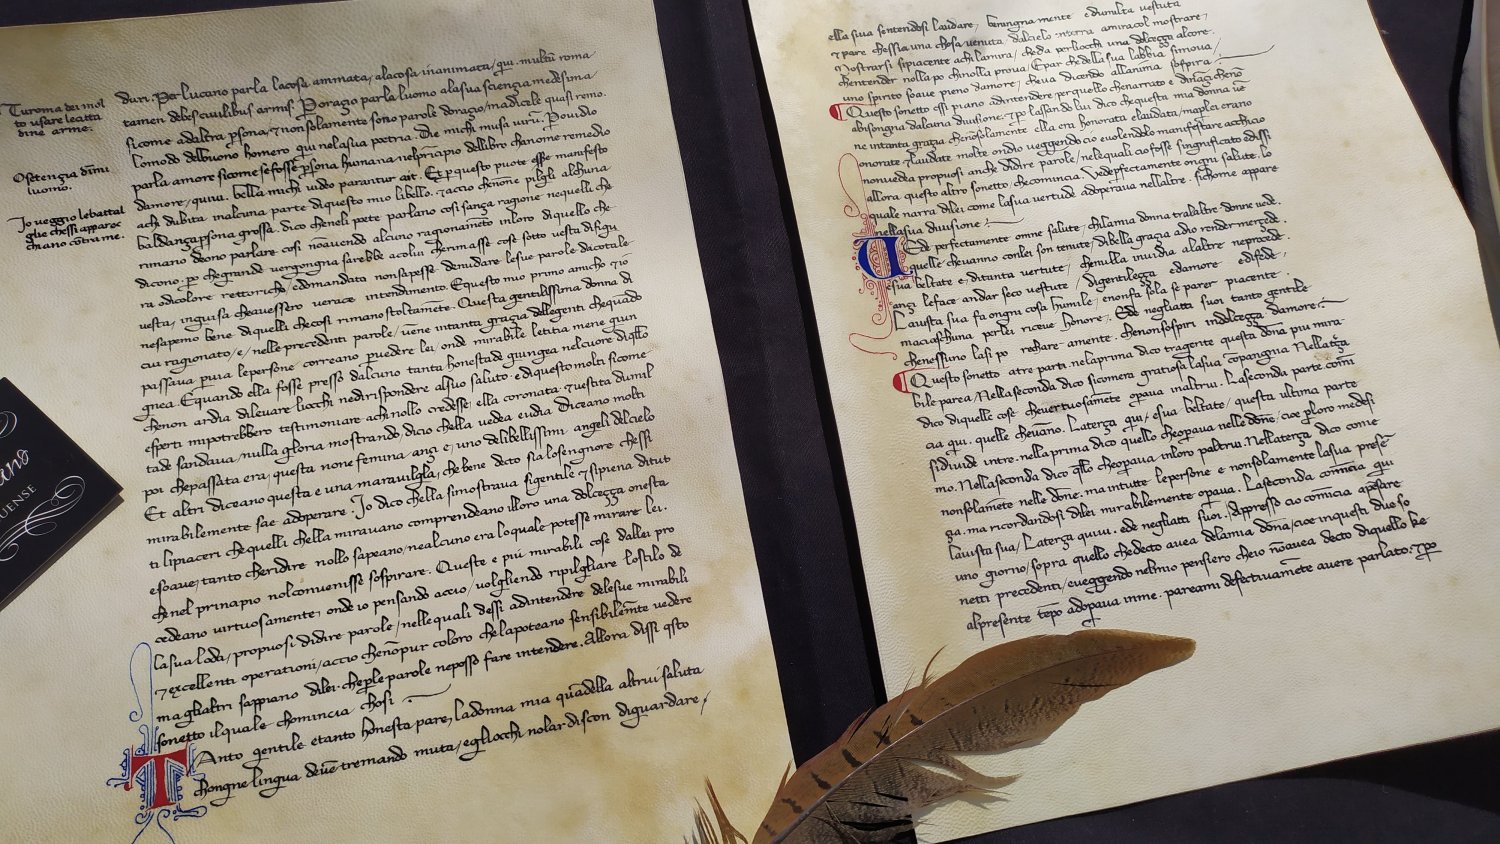 Tu roma dei mol
to usare leatta
dine arme.
Osetenzia dimi
luomo.
Io veggio lebattal
glie chessi apparec
chiano contrame.
duri. Per lucano parla lacosa ammata, alacosa inanimata, qui. multū roma
tamen debes ciuilibus armis. Per orazio parla luomo alasua scienza medesima
sicome adaltra psona, & nonsolamente sono parole dorazio, ma dicele quasi remo.
lomodo delbuono homero qui nelasua poetria. Dic michi musa uirū. Per ouidio
parla amore sicome se fosse psona humana nelprīcipio dellibro chanome remedio
damore, quiui. bella michi video parantur ait. Et p questo puote esse manifesto
ach dubita inalcuna parte diquesto mio libello. & acio chenōne pilgli alchuna
baldanza psona grossa. dico cheneli poete parlano cosi sanza ragione nequelli che
rimano deono parlare cosi nōauendo alcuno ragionamēto inloro diquello che
dicono. po chegrande vergongna sarebbe acolui cherimasse cose sotto vesta difigu
ra odicolore rettoricho, eddomandata nonsapesse denudare lesue parole dacotale
vesta, inguisa cheauessero verace intendimento. E questo mio primo amicho & io
nesapemo bene diquelli checosi rimano stoltamēte. Questa gentilissima donna di
cui ragionato, e, nelle precedenti parole, vēne intanta grazia dellegenti chequado
passaua pvia lepersone correano pvedere lei, onde mirabile letitia mene giun
gnea. E quando ella fosse presso dalcuno tanta honestade giungea nelcuore diqllo
chenon ardia dileuare liocchi nedirispondere alsuo saluto. e diquesto molti sicome
esperti mipotrebbero testimoniare achi nollo credesse. ella coronata & uestita dumil
tade sandaua, nulla gloria mostrando, dicio chella vedea eudia. Diceano molti
poi chepassata era, questa none femina. anz e, uno delibellissimi angeli delcielo
Et altri diceano questa e una maravilglia, che bene decto sia losengnore chessi
mirabilemente sae adoperare. Io dico chella simostraua sigentile & sipiena ditut
ti lipiaceri chequelli chella mirauano comprendeano illoro una dolcezza onesta
esoaue, tanto cheridire nollo sapeano, nealcuno era loquale potesse mirare lei.
chenel principio nolconuenisse sospirare. Queste e piu mirabili cose dallei pro
cedeano virtuosamente, onde io pensando accio, volgliendo ripilgliare lostilo de
lasua loda, propuosi didire parole, nellequali dessi adintendere delesue mirabili
& excellenti operationi, accio chenōpur coloro chelapoteano sensibilemte vedere
ma glialtri sappiano dilei. cheple parole neposso fare intendere. Allora dissi qsto
sonetto ilquale chomincia chosi.
Tanto gentile etanto honesta pare, ladonna mia quādella altrui saluta
chongne lingua deuē tremando muta, egliocchi nolar discon diguardare,
ella siua sentendosi laudare, benignamente e dumilta vestuta
& pare chessia una chosa venuta, dalcielo interra amiracol mostrare,
Mostrarsi sipiacente achilamira, cheda perliocchi una dolcezza alcore.
chentender nolla po chinolla prova. Epar chedella sua labbia simoua,
uno spirito soaue pieno damore, cheua dicendo allanima sospira.
Questo sonetto essi piano adintendere per quello chenarrato e dināzi chenō
abisongna dalcuna diuisione. & po lassando lui dico chequesta mia donna vē
ne intanta grazia chenōsolamente ella era honorata elaudata, maplei erano
onorate & laudate molte. ondio veggendo cio euolendo manifestare acchicio
nonuedia propuosi anche didire parole, nelequali cio fosse singnificato edissi
allora questo altro sonetto, checomincia. Vedeperfectamente ongni salute. lo
quale narra dilei come lasua vertude adoperaua nellaltre. sichome appare
nellasua diuisione.
Vede perfectamente omne salute, chilamia donna tralaltre donne vede.
quelle cheuanno conlei son tenute, dibella grazia adio render merzede.
esua beltate e, ditanta vertute, chenulla inuidia alaltre neprocede.
anzi leface andar seco vestute, digentilezza edamore edifede.
La uista sua fa ongni cosa humile, enonfa sola se parer piacente.
ma ciaschuna perlei riceue honore. Ede negliatti suoi tanto gentile
chenessuno lasi po rechare amente. chenonsospiri indolcezza damore.
Questo sonetto a tre parti nelaprima dico tragente questa dōna piu mira
bile parea. Nellaseconda dico sicomera gratiosa lasua cōpangnia. Nellatza
dico diquelle cose chevertuosamēte opaua inaltrui. Laseconda parte comī
cia qui. quelle cheuāno. Laterza qui, esua beltate. questa ultima parte
sidiuide intre. nella prima dico quello cheopaua nelle dōne, cioe ploro medesi
mo. Nellaseconda dico qllo cheopaua inloro paltrui. Nellaterza dico come
nonsolamēte nelle dōne. ma intutte lepersone e nonsolamente lasua presē
za. ma ricordandosi dilei mirabilemente opaua. Laseconda comīcia qui
lauista sua. Laterza quiui. ede negliatti suoi. Appresso cio comīcia apēsare
uno giorno, sopra quello chedecto auea delamia dōna, cioe inquesti due so
netti precedenti, eueggendo nelmio pensiero cheio nōauea decto diquello ke
alpresente tēpo adopaua inme. pareami defectiuamēte auere parlato. & po